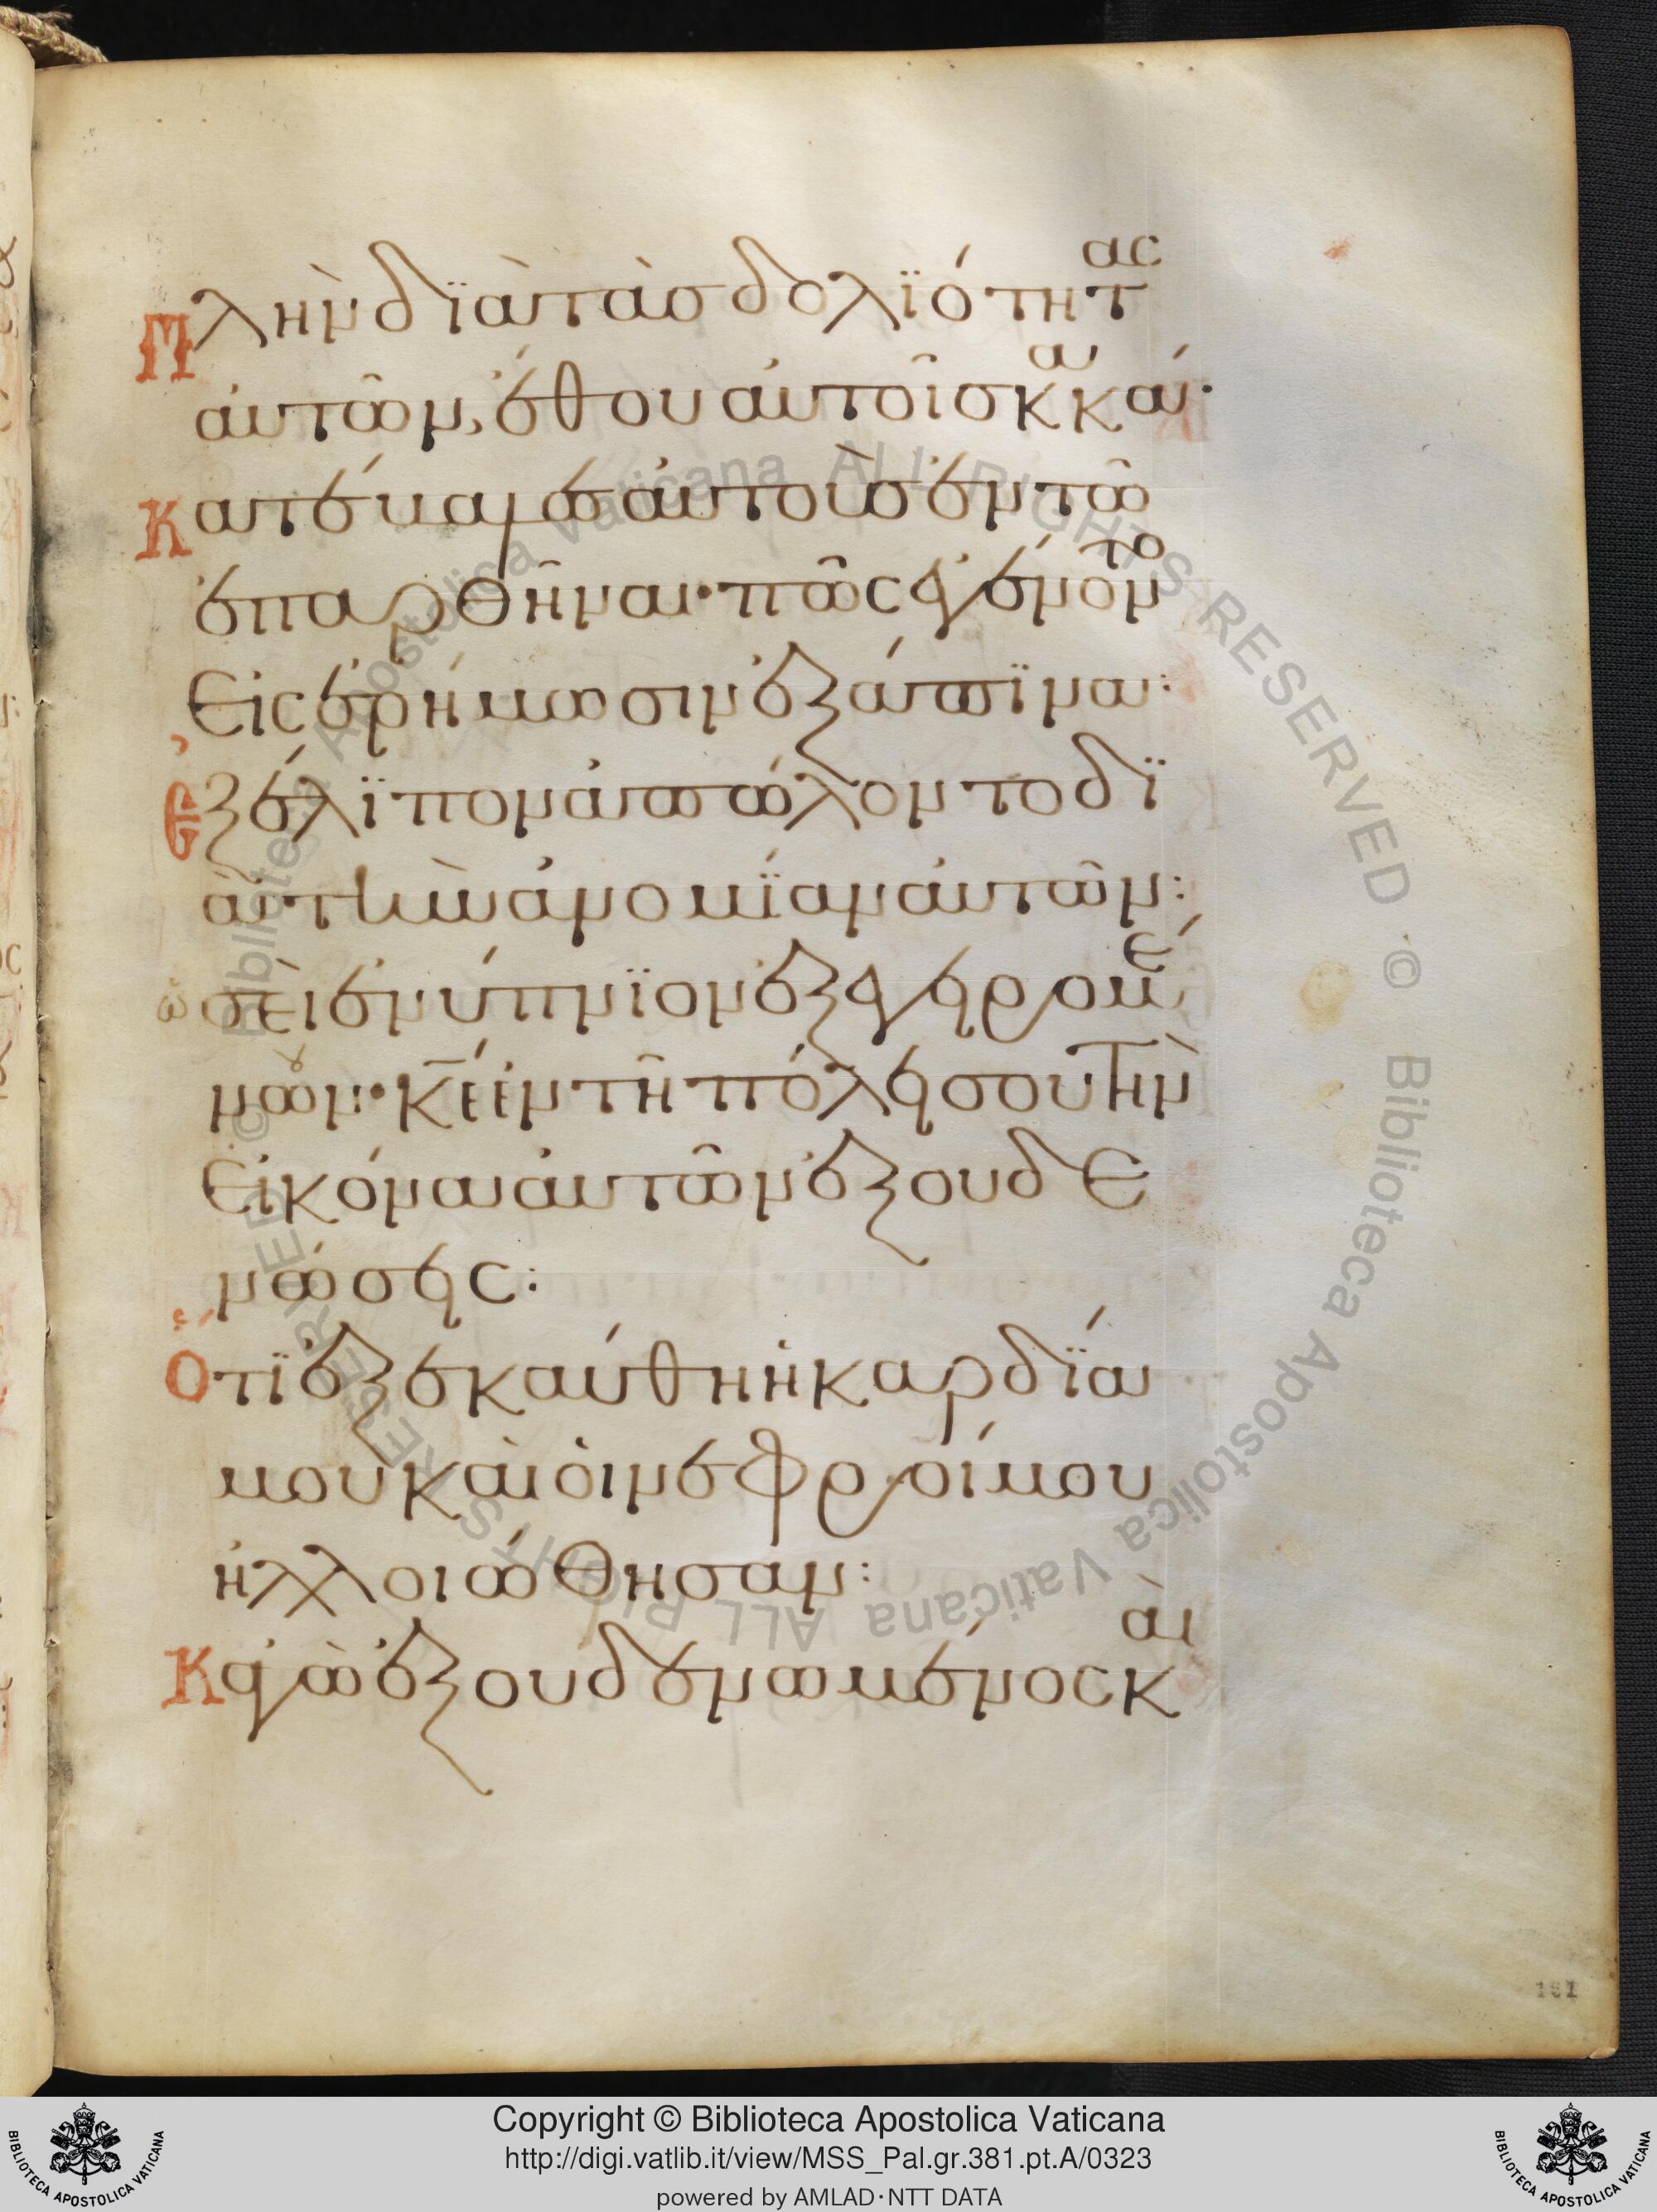 Πλὴν δϊὰ τὰσ δολϊότητας
αὐτῶν, ἔθου αὐτοῖσ κακά·
Κατέβαλεσ αὐτοὺσ ἐν τῶ
ἐπαρθῆναι· πῶς ἐγένοντο
Εἰς ἐρήμωσιν ἐξάπϊνα:
Ἐξέλϊπον ἀπώλοντο δϊ
ὰ τὴν ἀνομΐαν αὐτῶν:
ὡσεὶ ἐνύπνϊον ἐξεγειρομέ
νου· κε ἐν τῆ πόλει σου τὴν
Εἰκόνα αὐτῶν ἐξουδε
νώσεις:
Ὅτϊ ἐξεκαύθη ἡ καρδΐα
μου καὶ οἱ νεφροί μου
ἠλλοιώθησαν:
Κἀγὼ ἐξουδενωμένος καὶ
181
Copyright © Biblioteca Apostolica Vaticana
http://digi.vatlib.it/view/MSS_Pal.gr.381.pt.A/0323
powered by AMLAD·NTT DATA
BIBLIOTECA APOSTOLICA VATICANA
BIBLIOTECA APOSTOLICA VATICANA
© Biblioteca Apostolica Vaticana ALL RIGHTS RESERVED © Biblioteca Apostolica Vaticana ALL RIGHTS RESERVED